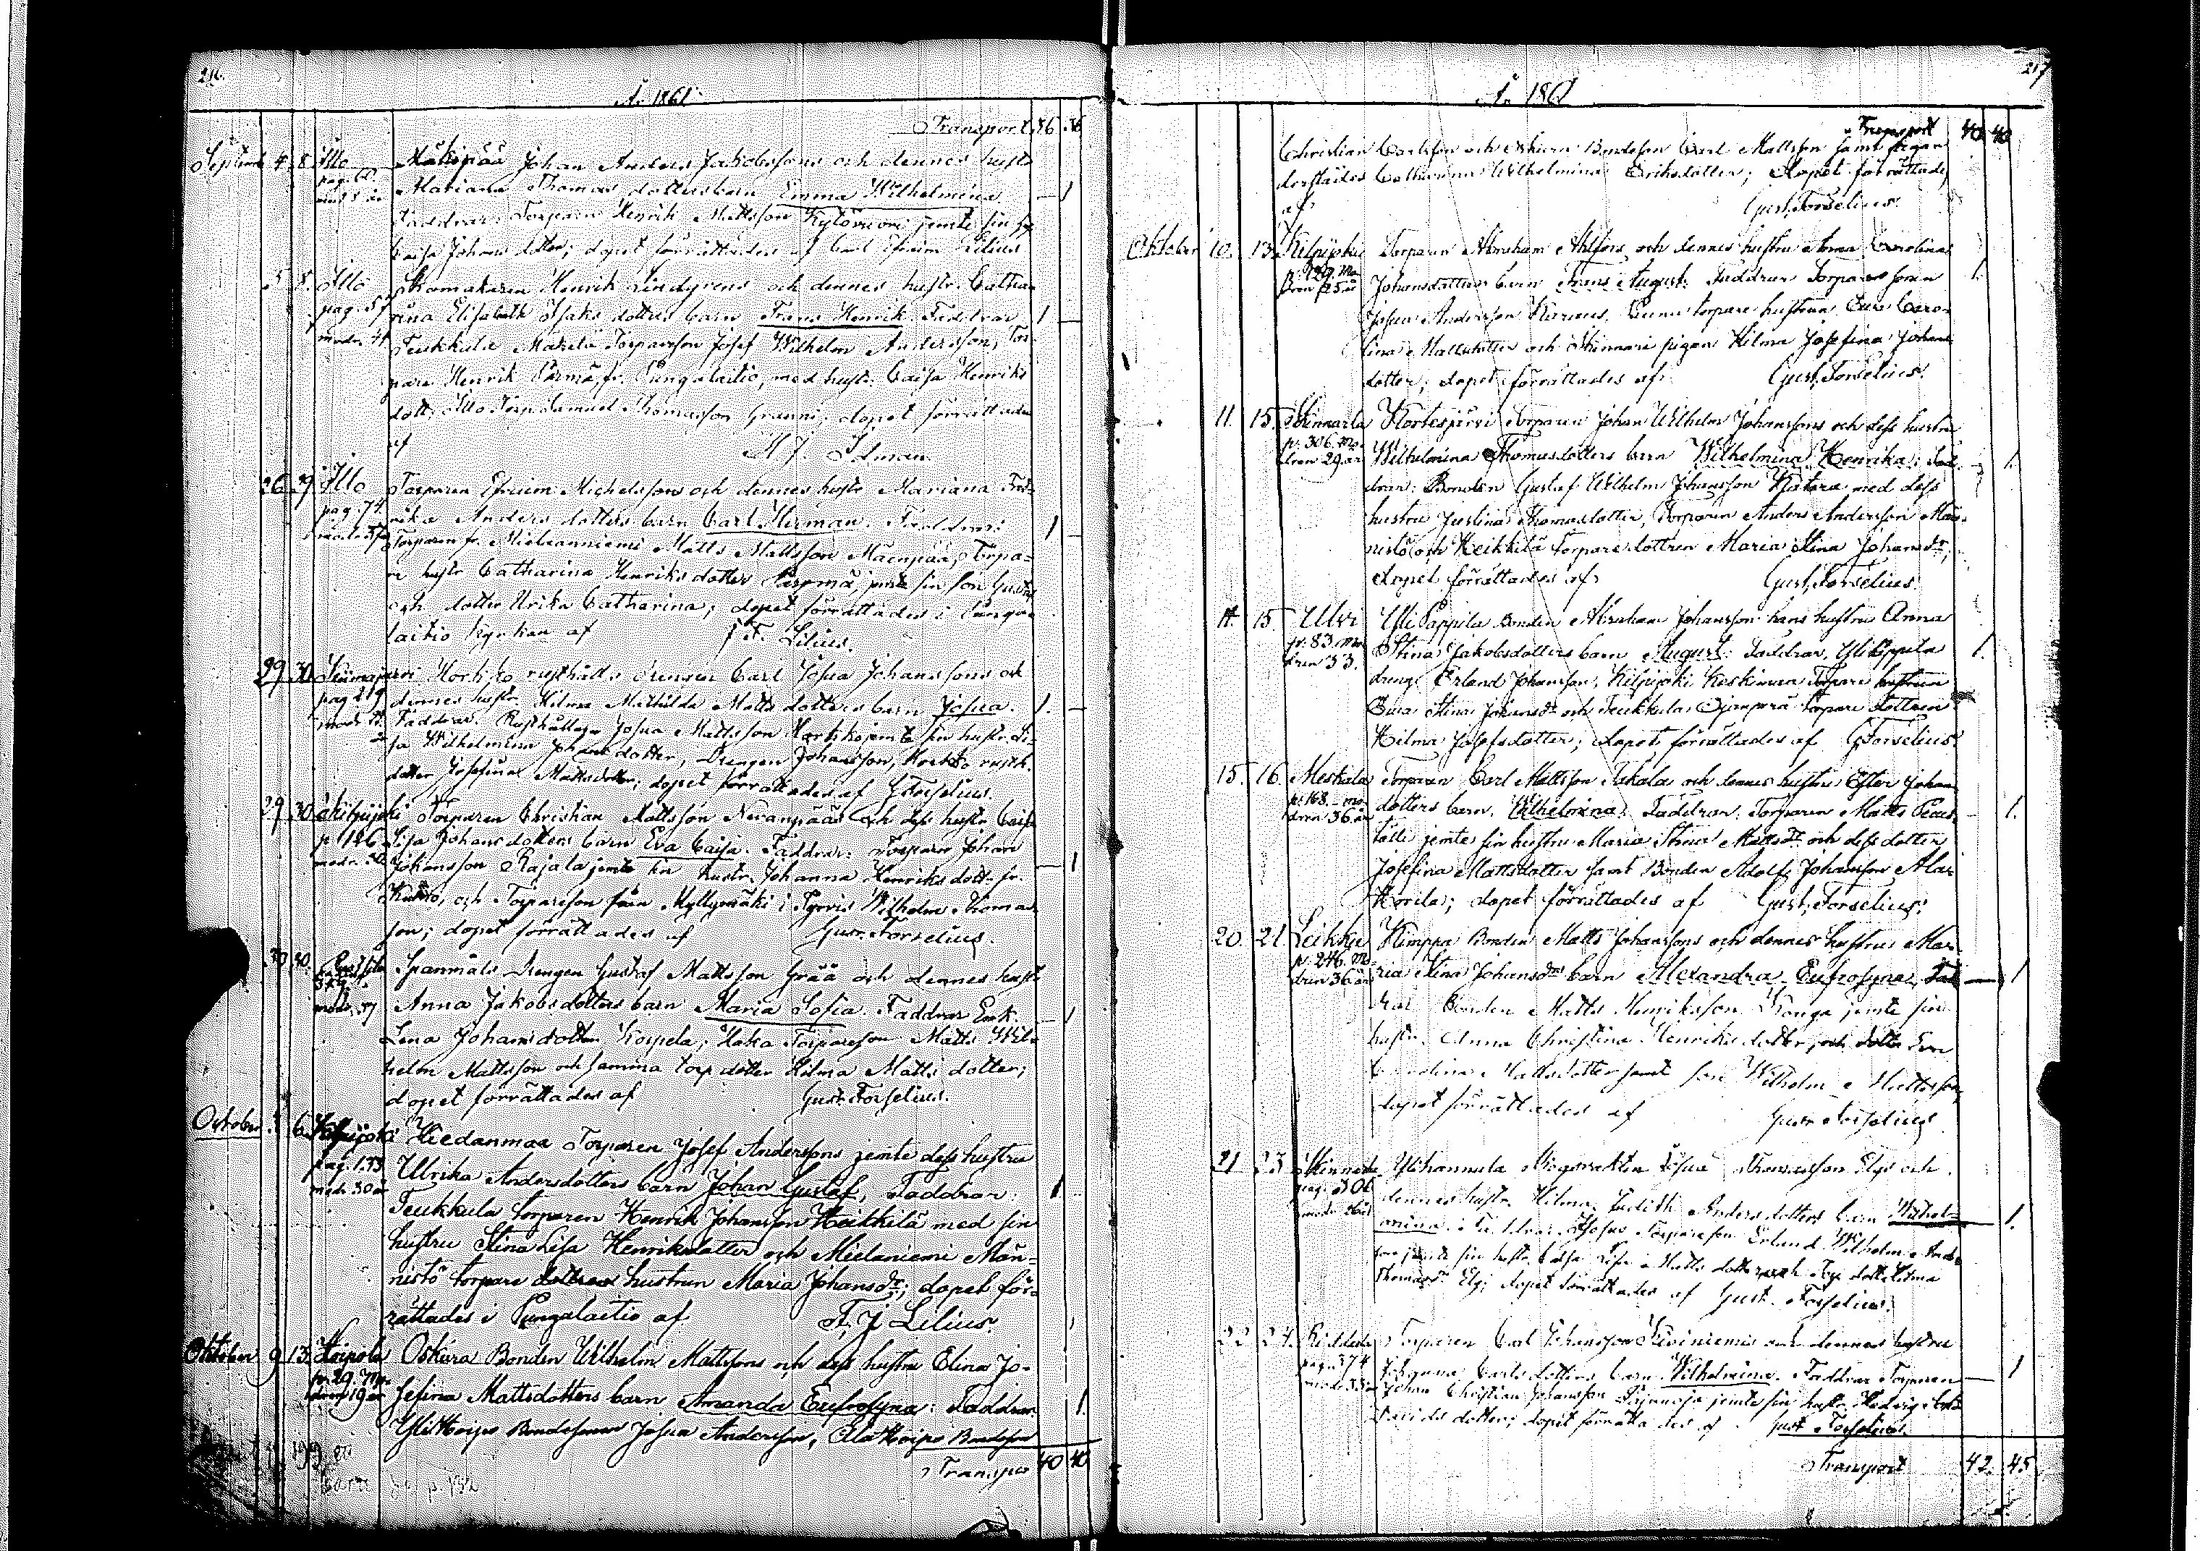 216.
A. 1861
Transport 36 36
Septemb 4. 8. Illo Mäkipää Johan Anders Jakobssons och dennes hustr
pag. 60. Mariana Thomas dotters barn Emma Wilhelmina 1
Faddrar: Torparn Henrik Mattsson Kytöwuori jemte sin h
Caisa Johans dotter; dopet förrättades af Carl Efraim Lilius
5 8. Illo Skomakaren Henrik Lindgrens och dennes hustr. Catha
pag. 57 rina Elisabeth Isaks dotters barn Frans Henrik. Faddrar 1
Teukkula Mäkelä Torparson Josef Wilhelm Andersson, Tor
pare Henrik Pärmä, fr. Pungalaitio, med hustr. Caisa Henriks
dott. Illo Torp. Samuel Thomasson Granni; dopet förrättades
af Idman.
26 29 Illo Torparen Efraim Michelssons och dennes hustr Mariana Fred
pag. 74. rika Anders dotters barn Carl Herman. Faddrar: 1
Torparen fr. Mielaanniemi Matts Mattsson Mäenpää, Torpa-
re hustr Catharina Henriks dotter Pärmä, jemte sin son Gustaf
och dotter Ulrika Catharina; dopet förrättades i Punga-
laitio kyrkan af F. Lilius.
29 30 Kortko rusthålls drengen Carl Josua Johanssons och
pag 219 dennes hustr. Hilma Mathilda Matts dotters barn Josua. 1.
Faddrar. Rusthållaren Josua Mattsson Kortko jemte sin hustr. Li-
sa Wilhelmina Johans dotter, Drengen Johansson, Kortko rusth.
dotter Josefina Mattsdotter; dopet förrättades af G Forselius.
29. 30. Kilpijoki Torparen Christian Mattsson Nevanpääs och dess hustr Caisa
p 126 Lisa Johans dotters barn Eva Caisa. Faddrar: Torparn Johan
Johansson Rajala jemte sin hustr. Johanna Henriks dott. fr. 1
och Torparson från Myllymäki i Tyrvis Wilhelm Thomas
son; dopet förrättades af Gust. Forselius.
30 30. Spanmåls Drengen Gustaf Mattsson Grää och dennes hustr
Anna Jakobsdotters barn Maria Sofia. Faddrar Enk. 1
Lena Johansdotter Korpela; Haka Torparson Matts Wil-
helm Mattsson och samma torp dotter Hilma Matts dotter;
dopet förrättades af Gust. Forselius.
October 5 6. Kilpijoki Hiedanmaa Torparen Josef Anderssons jemte dess hustru
pag. 133 Ulrika Andersdotters barn Johan Gustaf, Faddrar: 1
modr. 30 år Teukkula torparen Henrik Johansson Heikkilä med sin
hustru Stina Lisa Henriksdotter och Mielaniemi Män-
nistö torpare hustrun Maria Johansdr; dopet för-
rättades i Pungalaitio af F. J Lilius.
Oktober 9 13. Koipola Oskura Bonden Wilhelm Mattssons och dess hustru Elina Jo-
p. 29. Mo- sefina Mattsdotters barn Amanda Eufrosyna: Faddrar: 1.
dren 19 år Yli Hoipo Bondesonen Josua Andersson, Ala Hoipo Bondeson
Transpo 40 40

217
A. 1861
Transport 40 40
Christian Carlsson och Oskura Bondeson Carl Mattsson samt pigan
derstädes Catharina Wilhelmina Eriksdotter; dopet förrättades
af Gust. Forselius.
Oktober 10. 13. Kilpijoki Torparn Abraham Ahlfors och dennes hustru Anna Carolina
p. 129. Mo- Johansdotters barn Frans August: Faddrar Torpare sonen 1.
dren 25 år Josua Andersson torpare hustrun Eva Caro-
lina Mattsdotter och Skinnari pigan Hilma Josefina Johans
dotter; dopet förrättades af Gust. Forselius.
11. 15. Kinnarla Kortesjärvi Torparen Johan Wilhelm Johanssons och dess hustru
p. 306. Mo- Wilhelmina Thomasdotters barn Wilhelmina Henrika; Fad- 1.
dren 29 år drar: Bonden Gustaf Wilhelm Johansson Katara med dess
hustru Justina Thomasdotter, Torparen Anders Andersson Män-
nistö och Heikkilä Torpare dottren Maria Stina Johansdr,
dopet förrättades af Gust. Forselius.
14. 15. Ulvi Yli Pappila Bonden Abraham Johansson hans hustru Anna
p. 83. Mo- Stina Jakobsdotters barn August: Faddrar, Yli Pappila 1.
dren 33. dreng Erland Johansson, Kilpijoki Keskinen Torpare hustrun
Eva Stina Johansdr och Teukkula Ojanperä torpare dottren
Hilma Josefsdotter; dopet förrättades af G Forselius.
15. 16. Meskala Torparen Carl Mattsson Iskala och dennes hustru Ester Johans
p. 168. mo- dotters barn. Wilhelmina; Faddrar: Torparen Matts 1.
dren 36 år jemte sin hustru Maria Stina Mattsdr och dess dotter
Josefina Mattsdotter samt Bonden Adolf Johansson
dopet förrättades af Gust. Forselius.
20. 21. Leikku Kimppa Bonden Matts Johanssons och dennes hustru Ma-
p. 246. Mo- ria Stina Johansdrs barn Alexandra Eufrosyna. Fad- 1
dren 36 år drar Bonden Matts Henriksson Konga jemte sin
hustr. Anna Christina Henriks dotter, och dotter Eva
Carolina Mattsdotter samt son Wilhelm Mattsson,
dopet förrättades af Gust Forselius
21 23 Ylihannula Josua Thomasson Elgs och
pag. 306 dennes hustr. Hilma Judith Anders dotters barn Wilhel-
mina. Faddrar: Torparson Erland Wilhelm Anders 1.
son jemte sin hustr. Caisa Lisa Matts dotter och
Thomasdr Elg; dopet förrättades af Gust. Forselius.
22 27. Torparen Carl Johansson Kiviniemis och dennes hustru
pag. 374 Johanna Carls dotters barn Wilhelmina. Faddrar Torparen 1
Johan Christian Johansson jemte sin hustr. Hedvig
Davids dotter; dopet förrättades af Gust Forselius.
Transport 42. 45